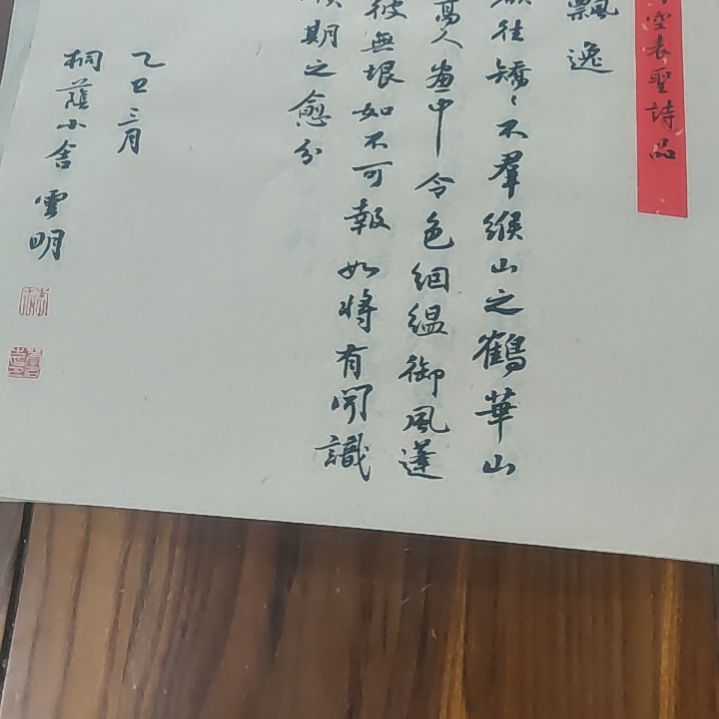 空表聖詩品
飄逸
欲往矯〻不羣緱山之鶴華山
高人畫中令色絪縕御風蓬
彼無垠如不可執如將有聞識
期之愈分
乙巳三月
桐蔭小舍 雪明